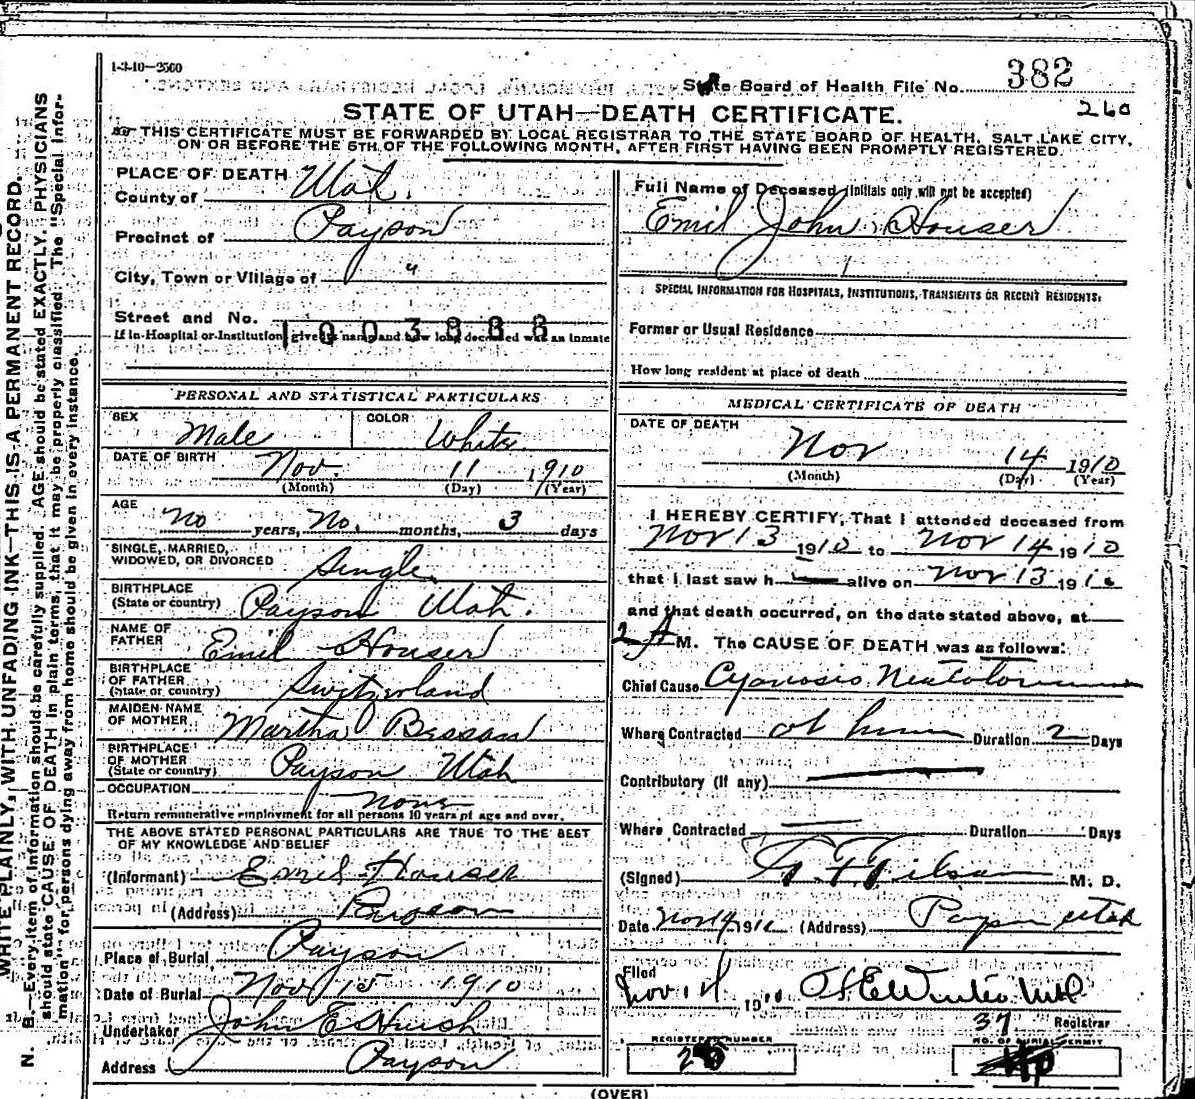 1-3-10—2500
State Board of Health File No. 382
260
STATE OF UTAH—DEATH CERTIFICATE.
THIS CERTIFICATE MUST BE FORWARDED BY LOCAL REGISTRAR TO THE STATE BOARD OF HEALTH, SALT LAKE CITY,
ON OR BEFORE THE 5TH OF THE FOLLOWING MONTH, AFTER FIRST HAVING BEEN PROMPTLY REGISTERED.
WRITE PLAINLY, WITH UNFADING INK—THIS IS A PERMANENT RECORD.
N. B.—Every item of information should be carefully supplied. AGE should be stated EXACTLY. PHYSICIANS
should state CAUSE OF DEATH in plain terms, that it may be properly classified. The "Special Infor-
mation" for persons dying away from home should be given in every instance.
PLACE OF DEATH
County of Utah
Precinct of Payson
City, Town or Village of "
Street and No.
1003888
If in Hospital or Institution, give its name and how long deceased was an inmate
PERSONAL AND STATISTICAL PARTICULARS
SEX Male COLOR White
DATE OF BIRTH Nov. 11 1910
(Month) (Day) (Year)
AGE No years, No. months, 3 days
SINGLE, MARRIED,
WIDOWED, OR DIVORCED Single
BIRTHPLACE
(State or country) Payson Utah.
NAME OF
FATHER Emil Houser
BIRTHPLACE
OF FATHER
(State or country) Switzerland
MAIDEN NAME
OF MOTHER Martha
BIRTHPLACE
OF MOTHER
(State or country) Payson Utah
OCCUPATION none
Return remunerative employment for all persons 10 years of age and over.
THE ABOVE STATED PERSONAL PARTICULARS ARE TRUE TO THE BEST
OF MY KNOWLEDGE AND BELIEF
(Informant) Emil Houser
(Address) Payson
Place of Burial Payson
Date of Burial Nov 15 1910
Undertaker John E Huish
Address Payson
Full Name of Deceased (Initials only will not be accepted)
Emil John Houser
SPECIAL INFORMATION FOR HOSPITALS, INSTITUTIONS, TRANSIENTS OR RECENT RESIDENTS:
Former or Usual Residence
How long resident at place of death
MEDICAL CERTIFICATE OF DEATH
DATE OF DEATH
Nov 14 1910
(Month) (Day) (Year)
I HEREBY CERTIFY, That I attended deceased from
Nov 13 1910 to Nov 14 1910
that I last saw h alive on Nov 13 1910
and that death occurred, on the date stated above, at
2 A M. The CAUSE OF DEATH was as follows:
Chief Cause Cyanosis
Where Contracted at home Duration 2 Days
Contributory (if any)
Where Contracted Duration Days
(Signed) M. D.
Date Nov 14 1910 (Address) Payson Utah
Filed
Nov 14 1910
37 Registrar
REGISTERED NUMBER
NO. OF BURIAL PERMIT
(OVER)